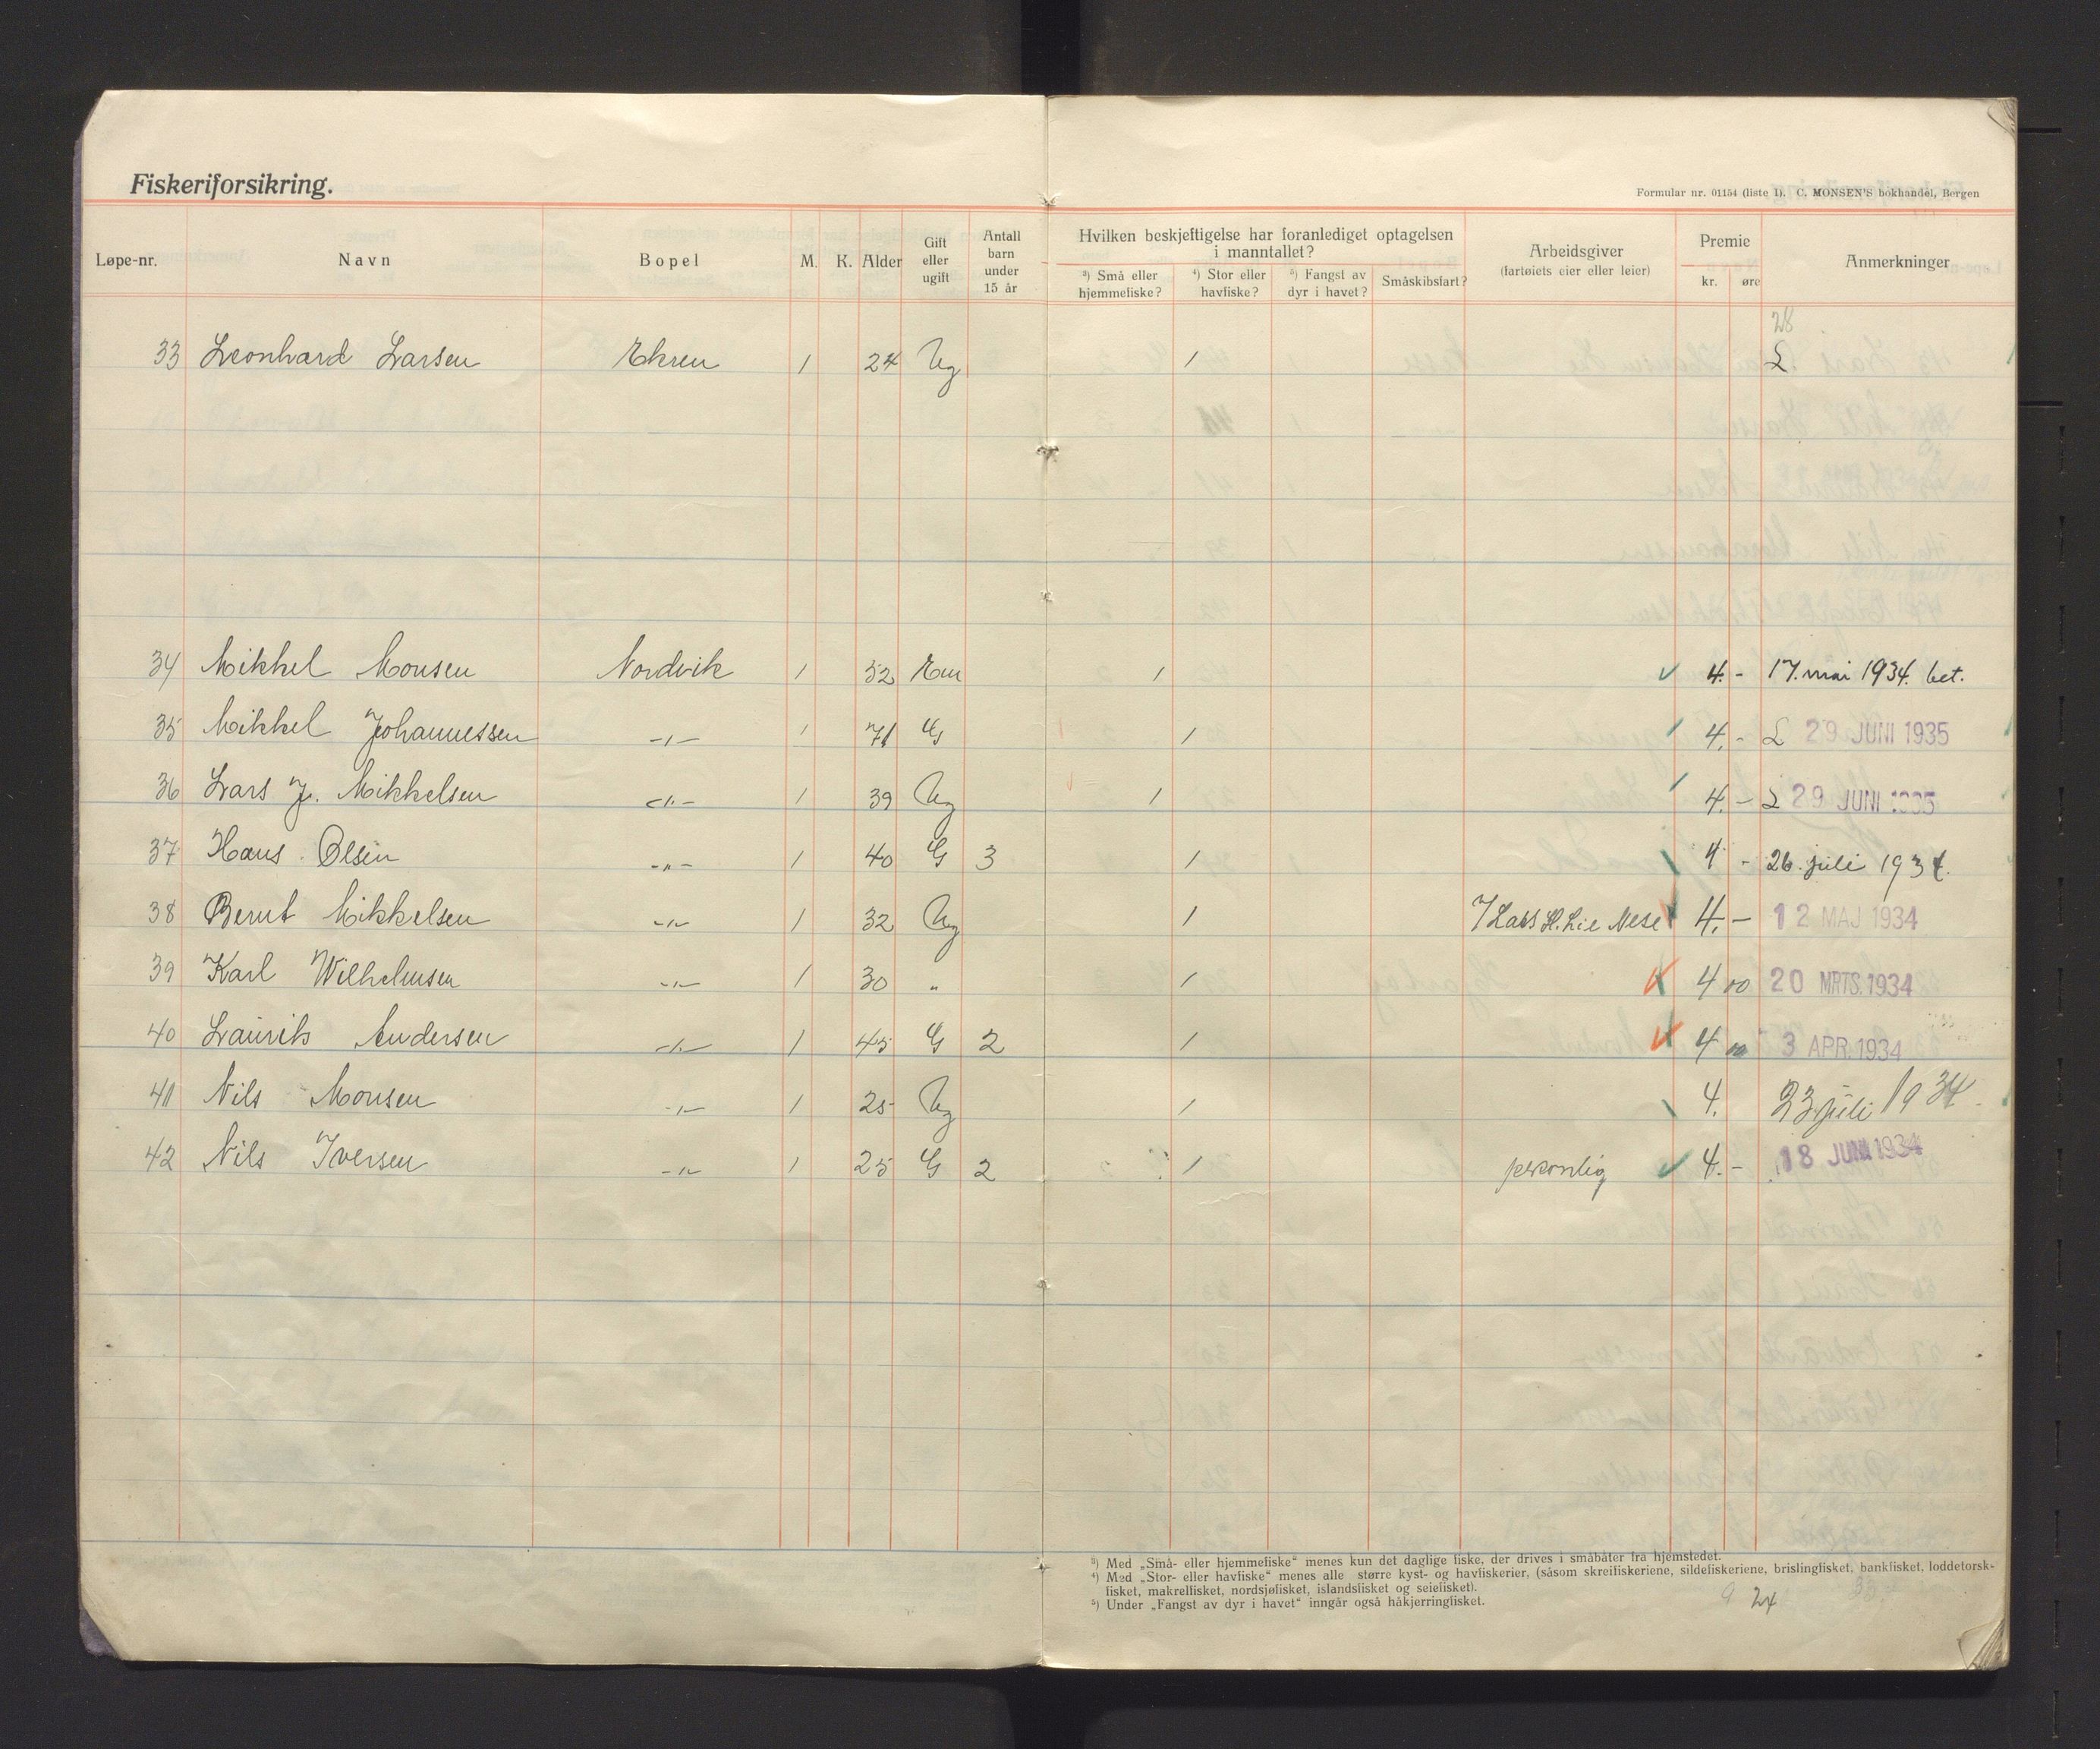 Fiskeriforsikring.
Formular nr. 01154 (liste 1). C. MONSEN'S bokhandel, Bergen
Løpe-nr. Navn Bopel M. K. Alder Gift eller ugift Antall barn under 15 år Hvilken beskjeftigelse har foranlediget optagelsen i manntallet? ³) Små eller hjemmefiske? ⁴) Stor eller havfiske? ⁵) Fangst av dyr i havet? Småskibsfart? Arbeidsgiver (fartøiets eier eller leier) Premie kr. øre Anmerkninger
28
33 Leonhard Larsen Ekren 1 24 Ug 1 L
34 Mikkel Monsen Nordvik 1 52 Em 1 4.- 17. mai 1934. bet.
35 Mikkel Johannessen -"- 1 71 G 1 4.- L 29 JUNI 1935
36 Lars J. Mikkelsen -"- 1 39 Ug 1 4.- L 29 JUNI 1935
37 Hans Olsen -"- 1 40 G 3 1 4 - 26. juli 1934.
38 Bernt Mikkelsen -"- 1 32 Ug 1 Lars H. Lie Nese 4.- 12 MAJ 1934
39 Karl Wilhelmsen -"- 1 30 " 1 4 00 20 MRTS. 1934
40 Laurits Andersen -"- 1 45 G 2 1 4 00 3 APR. 1934
41 Nils Monsen -"- 1 25 Ug 1 4. 23 juli 1934.
42 Nils Iversen -"- 1 25 G 2 1 personlig 4.- 18 JUNI 1934
³) Med „Små- eller hjemmefiske" menes kun det daglige fiske, der drives i småbåter fra hjemstedet.
⁴) Med „Stor- eller havfiske" menes alle større kyst- og havfiskerier, (såsom skreifiskeriene, sildefiskeriene, brislingfisket, bankfisket, loddetorsk-
fisket, makrelfisket, nordsjøfisket, islandsfisket og seiefisket).
⁵) Under „Fangst av dyr i havet" inngår også håkjerringfisket.
9 24